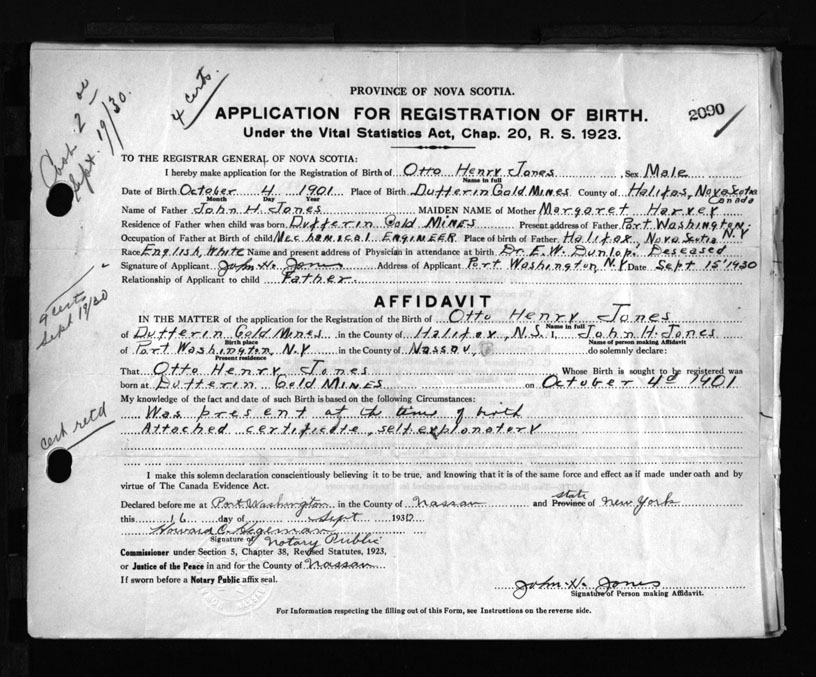 Cash 2 00
Sept. 19/30.
4 certs.
PROVINCE OF NOVA SCOTIA.
APPLICATION FOR REGISTRATION OF BIRTH.
2090
Under the Vital Statistics Act, Chap. 20, R. S. 1923.
TO THE REGISTRAR GENERAL OF NOVA SCOTIA:
I hereby make application for the Registration of Birth of Otto Henry Jones, Sex Male
Name in full
Date of Birth October 4 1901 Place of Birth Dufferin Gold Mines County of Halifax, Nova Scotia
Month Day Year Canada
Name of Father John H. Jones MAIDEN NAME of Mother Margaret Harvey
Residence of Father when child was born Dufferin Gold Mines Present address of Father Port Washington, N.Y.
Occupation of Father at Birth of child Mechanical Engineer Place of birth of Father Halifax, Nova Scotia
Race English, White Name and present address of Physician in attendance at birth Dr. E. W. Dunlop. Deseased
Signature of Applicant John H. Jones Address of Applicant Port Washington, N.Y. Date Sept 15' 1930
Relationship of Applicant to child Father.
4 certs
Sept 19/30
AFFIDAVIT
IN THE MATTER of the application for the Registration of the Birth of Otto Henry Jones
Name in full
of Dufferin Gold Mines in the County of Halifax, N.S. I, John H. Jones
Birth place Name of person making Affidavit
of Port Washington, N.Y in the County of Nassau, do solemnly declare:
Present residence
That Otto Henry Jones Whose Birth is sought to be registered was
born at Dufferin Gold Mines on October 4th 1901
My knowledge of the fact and date of such Birth is based on the following Circumstances:
Was present at the time of birth
Attached certificate, self explanatory
cert retd
I make this solemn declaration conscientiously believing it to be true, and knowing that it is of the same force and effect as if made under oath and by
virtue of The Canada Evidence Act.
Declared before me at Port Washington in the County of Nassau and state Province of New York
this 16 day of Sept 1930
Howard C.
Signature of Notary Public
Commissioner under Section 5, Chapter 38, Revised Statutes, 1923,
or Justice of the Peace in and for the County of Nassau
If sworn before a Notary Public affix seal.
John H. Jones
Signature of Person making Affidavit.
For Information respecting the filling out of this Form, see Instructions on the reverse side.